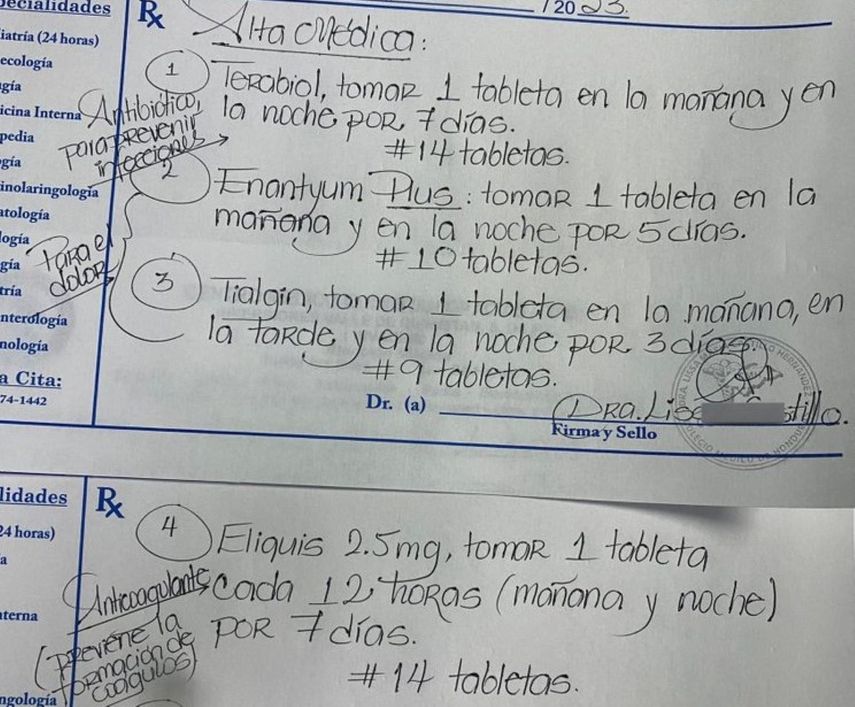 ecialidades
iatría (24 horas)
ecología
gía
icina Interna
pedia
gía
inolaringología
atología
logía
gía
tría
nterología
nología
a Cita:
74-1442
Rx
/ 20 23.
Alta Médica:
1) Terabiol, tomar 1 tableta en la mañana y en
la noche por 7 días.
#14 tabletas.
Antibiótico,
para prevenir
infecciones
2) Enantyum Plus: tomar 1 tableta en la
mañana y en la noche por 5 días.
#10 tabletas.
Para el
dolor
3) Tialgin, tomar 1 tableta en la mañana, en
la tarde y en la noche por 3 días.
#9 tabletas.
Dr. (a)
Dra. Lis stillo.
Firma y Sello
lidades
24 horas)
a
terna
ngología
Rx
4) Eliquis 2.5mg, tomar 1 tableta
cada 12 horas (mañana y noche)
por 7 días.
#14 tabletas.
Anticoagulante
(previene la
formación de
coágulos)